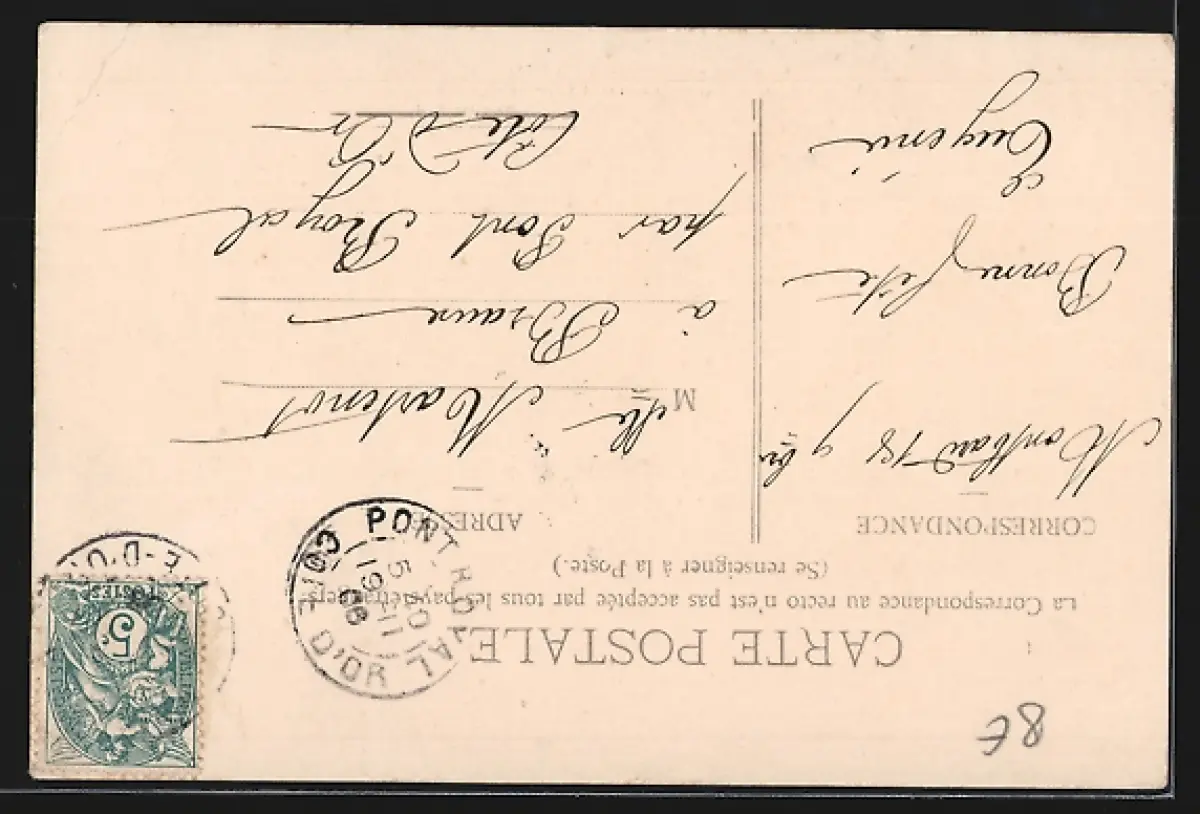 8€
CARTE POSTALE
La Correspondance au recto n'est pas acceptée par tous les pays étrangers
(Se renseigner à la Poste.)
CORRESPONDANCE
ADRESSE
Montbard 18 9bre
Bonne fête
Eugénie
Melle Martenot
à Braux
par Pont Royal
Côte d'Or
PONT-ROYAL
5 10
19 11
06
COTE D'OR
E-D'O
5c
POSTES